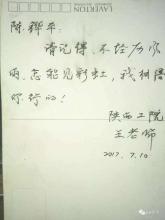 陈辉平:
请记得,不经历风
雨,怎能见彩虹,我相信
你行的!
陕西工院
王老师
2017.7.10